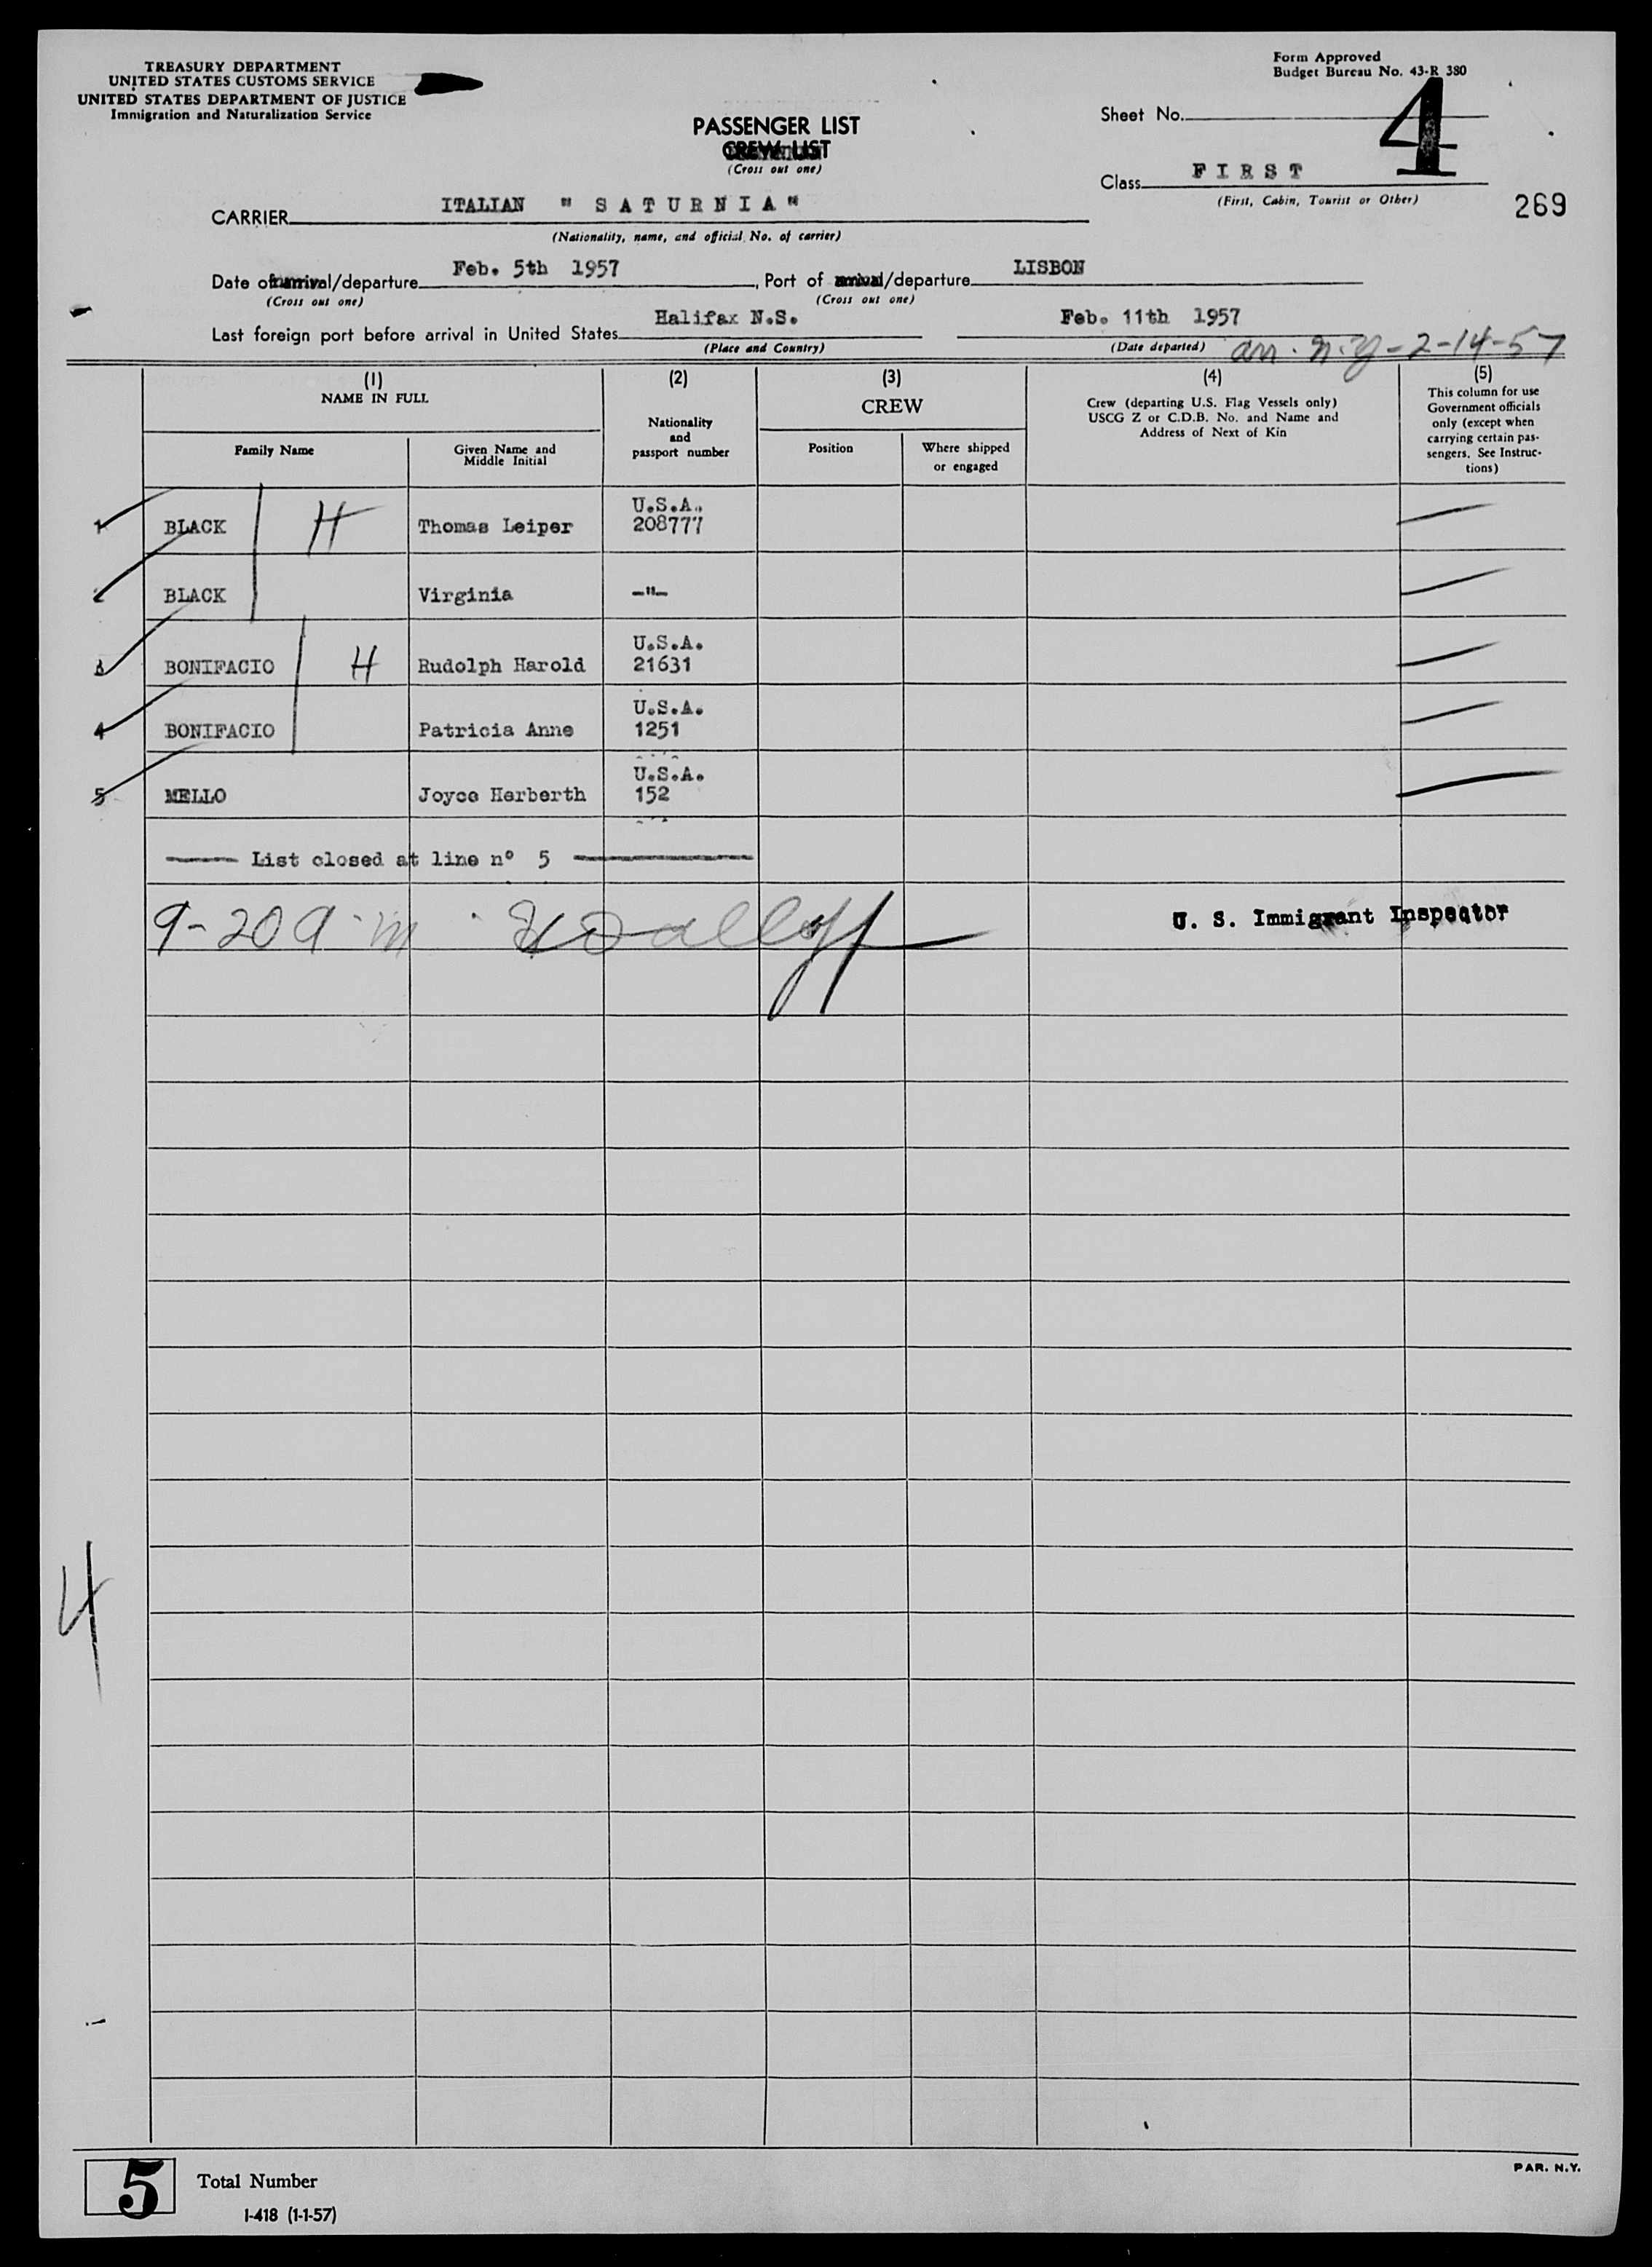 TREASURY DEPARTMENT
UNITED STATES CUSTOMS SERVICE
UNITED STATES DEPARTMENT OF JUSTICE
Immigration and Naturalization Service
Form Approved
Budget Bureau No. 43-R 380
PASSENGER LIST
CREW LIST
(Cross out one)
Sheet No. 4
Class FIRST
(First, Cabin, Tourist or Other)
269
CARRIER ITALIAN "SATURNIA"
(Nationality, name, and official No. of carrier)
Date of arrival/departure Feb. 5th 1957, Port of arrival/departure LISBON
(Cross out one) (Cross out one)
Last foreign port before arrival in United States Halifax N.S. Feb. 11th 1957
(Place and Country) (Date departed) arr. N.Y-2-14-57
(1) (2) (3) (4) (5)
NAME IN FULL
Family Name
Given Name and
Middle Initial
Nationality
and
passport number
CREW
Position
Where shipped
or engaged
Crew (departing U.S. Flag Vessels only)
USCG Z or C.D.B. No. and Name and
Address of Next of Kin
This column for use
Government officials
only (except when
carrying certain pas-
sengers. See Instruc-
tions)
U.S.A.
1 BLACK H Thomas Leiper 208777
2 BLACK Virginia -"-
U.S.A.
3 BONIFACIO H Rudolph Harold 21631
U.S.A.
4 BONIFACIO Patricia Anne 1251
U.S.A.
5 MELLO Joyce Herberth 152
List closed at line nº 5
9-20 a.m.
U. S. Immigrant Inspector
4
5 Total Number
I-418 (1-1-57)
PAR. N.Y.